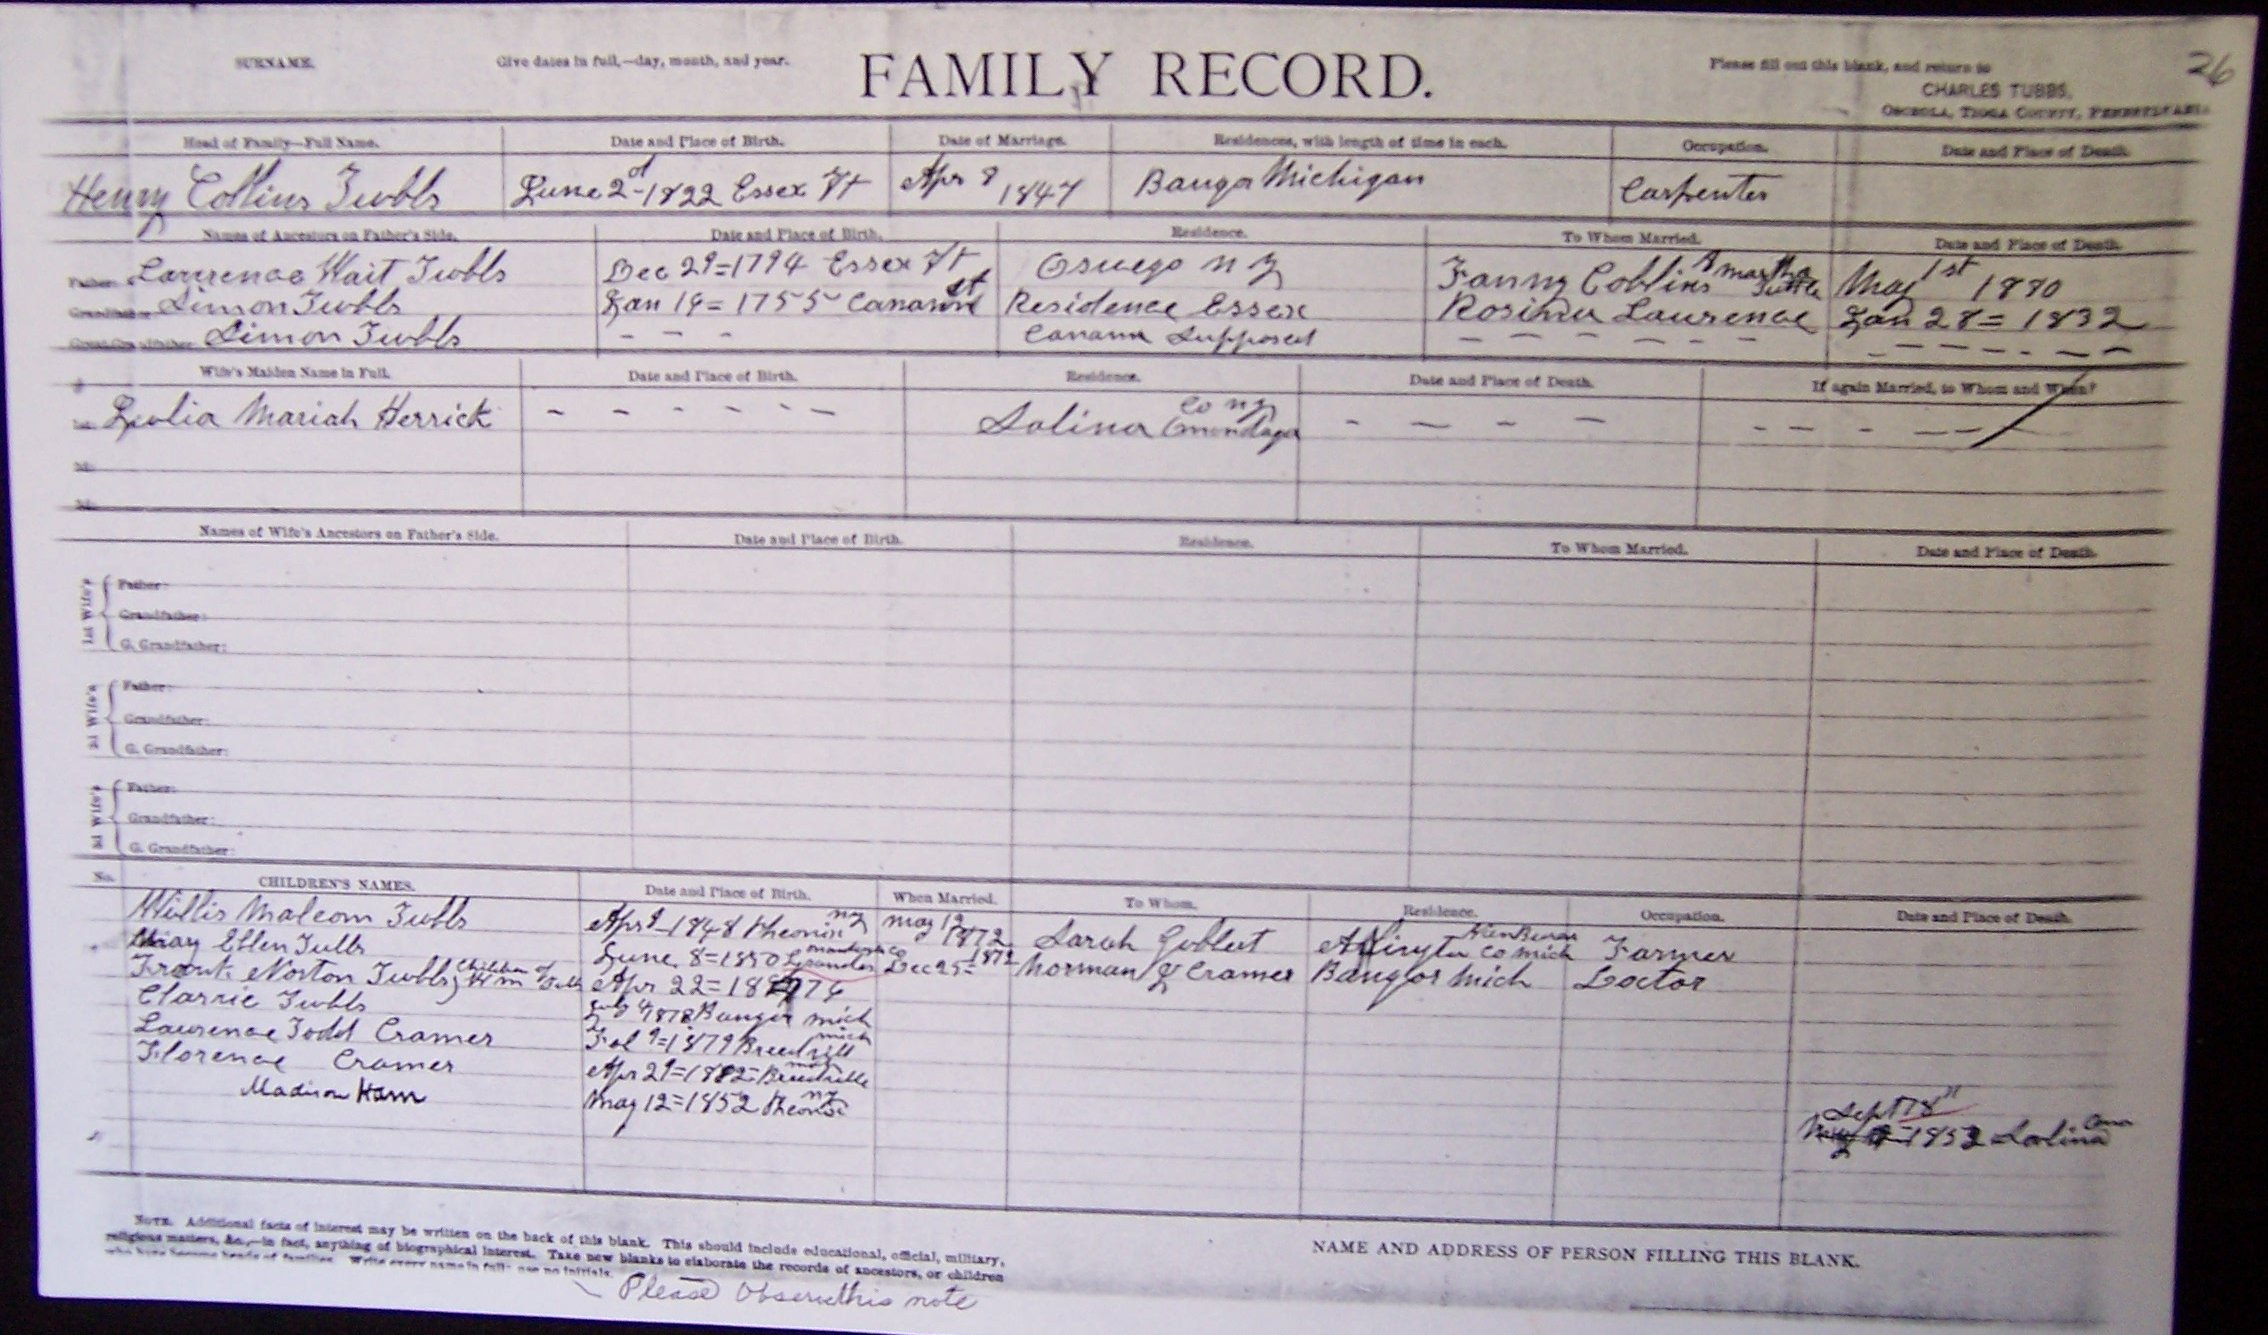 26
SURNAME. Give dates in full,—day, month, and year. FAMILY RECORD. Please fill out this blank, and return to
CHARLES TUBBS,
OSCEOLA, TIOGA COUNTY, PENNSYLVANIA
Head of Family—Full Name. Date and Place of Birth. Date of Marriage. Residences, with length of time in each. Occupation. Date and Place of Death.
Henry Collins Tubbs June 2d-1822 Essex Vt Apr 8 1847 Bangor Michigan Carpenter
Names of Ancestors on Father's Side. Date and Place of Birth. Residence. To Whom Married. Date and Place of Death.
Father: Laurence Wait Tubbs Dec 29=1794 Essex Vt Oswego N Y Fanny Collins & Martha May 1st 1880
Grandfather: Simon Tubbs Jan 14=1755 Canaan Residence Essex Rosinda Laurence Jan 28=1832
Great-Grandfather: Simon Tubbs - - - Canaan Supposed - - - - - - - - - - - -
Wife's Maiden Name in Full. Date and Place of Birth. Residence. Date and Place of Death. If again Married, to Whom and When?
1st. Julia Mariah Herrick - - - - - - Salina Co NY - - - - - - - - -
2d.
3d.
Names of Wife's Ancestors on Father's Side. Date and Place of Birth. Residence. To Whom Married. Date and Place of Death.
1st Wife's
Father:
Grandfather:
G. Grandfather:
2d Wife's
Father:
Grandfather:
G. Grandfather:
3d Wife's
Father:
Grandfather:
G. Grandfather:
No. CHILDREN'S NAMES. Date and Place of Birth. When Married. To Whom. Residence. Occupation. Date and Place of Death.
Willis Malcom Tubbs Apr 9-1848 NY May 19 1872 Sarah Co Mich Farmer
May Ellen Tubbs June 8=1850 Dec 25= 1872 Norman J Cramer Bangor Mich Doctor
Frank Norton Tubbs Children of Wm Apr 22=1874
Clarrie Tubbs July 4 1878 Bangor Mich
Laurence Todd Cramer Feb 9=1879 Mich
Florence Cramer Apr 29=1882= Breedville
Madison Ham May 12=1852 NY Sept 18 1852 Salina
NOTE. Additional facts of interest may be written on the back of this blank. This should include educational, official, military,
religious matters, &c.,—in fact, anything of biographical interest. Take new blanks to elaborate the records of ancestors, or children
who have become heads of families. Write every name in full: use no initials.
Please Observe this note
NAME AND ADDRESS OF PERSON FILLING THIS BLANK.